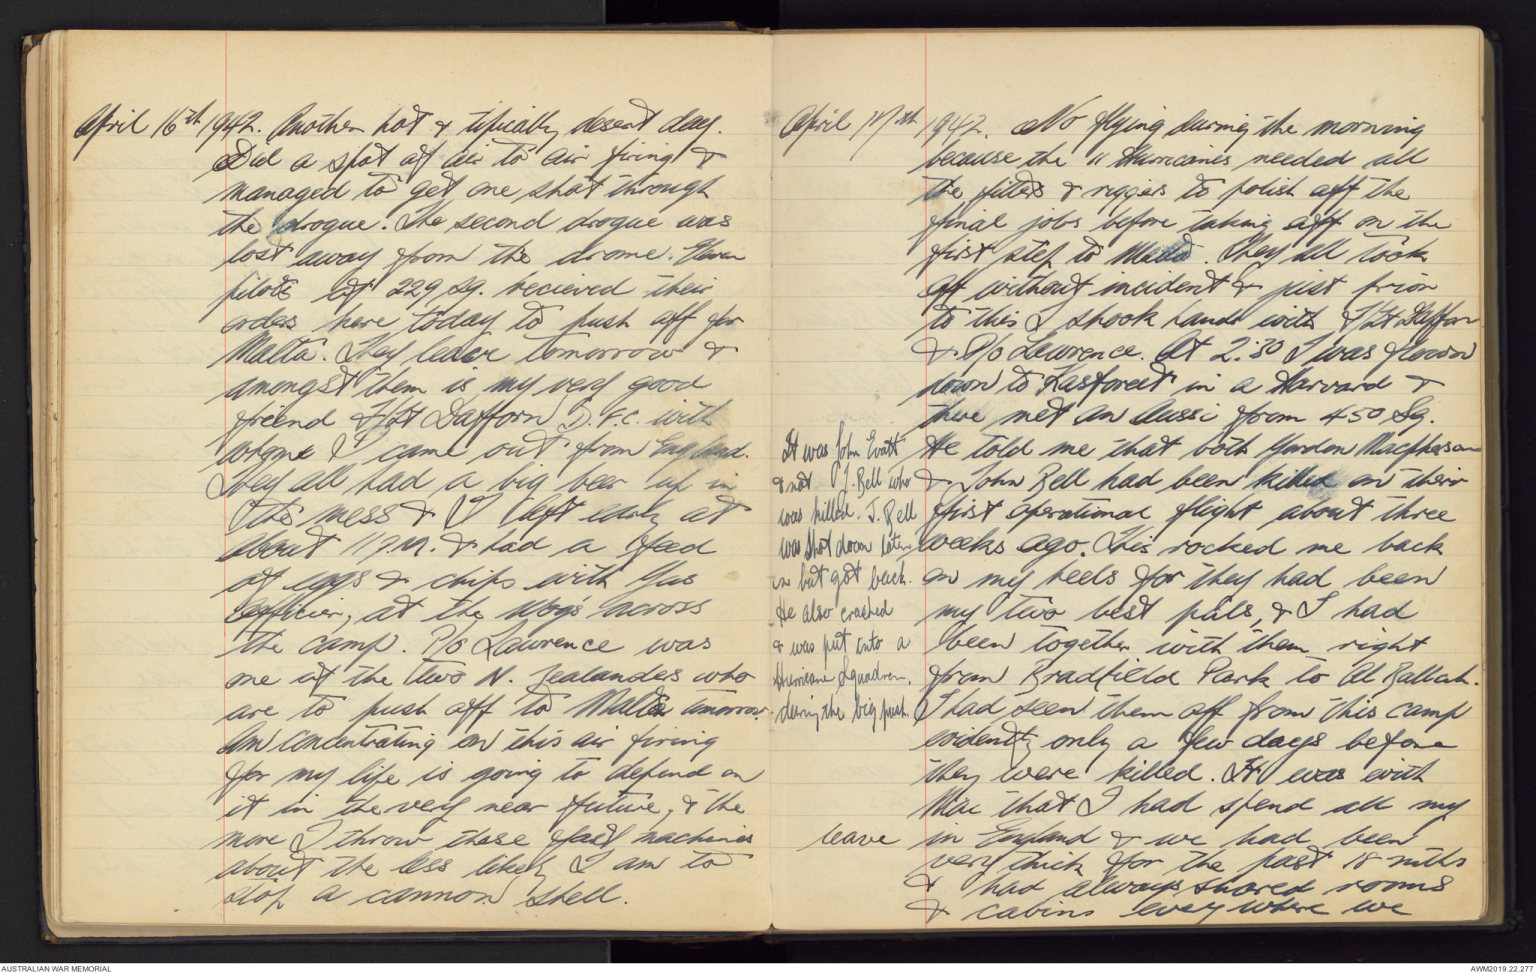 April 16th 1942. Another hot & tipically desert day.
Did a spot of air to air firing &
managed to get one shot through
the drogue. The second drogue was
lost away from the drome. Eleven
pilots of 229 Sq. recieved their
orders here today to push off for
Malta. They leave tomorrow &
amongst them is my very good
freend F/Lt Dafforn D.F.C. with
whome I came out from England.
They all had a big beer up in
the mess & I left early at
about 11 P.M. & had a feed
of eggs & chips with Gus
at the Wogs across
the camp. P/O Lawrence was
one of the two N. Zealanders who
are to push off to Malta tomorrow.
Am concentrating on this air firing
for my life is going to depend on
it in the very near future, & the
more I throw these fast machines
about the less likely I am to
stop a cannon shell.
April 17th 1942. No flying during the morning
because the 11 Hurricanes needed all
the fitters & riggers to polish off the
final jobs before taking off on the
first step to Malta. They all took
off without incident & just prior
to this I shook hands with F/Lt Dafforn
& P/O Lawrence. At 2:30 I was flown
down to Kasfareet in a Harvard &
there met an Aussi from 450 Sq.
He told me that both Gordon Macpherson
& John Bell had been killed on their
first operational flight about three
weeks ago. This rocked me back
on my heels for they had been
my two best pals, & I had
been together with them right
from Bradfield Park to Al Ballah.
I had seen them off from this camp
evidently only a few days before
they were killed. It was with
Mac that I had spend all my
leave in England & we had been
very thick for the past 18 mths
& had always shared rooms
& cabins everywhere we
It was John Evatt
& not J. Bell who
was killed. J. Bell
was shot down later
on but got back.
He also crashed
& was put into a
Hurricane Squadron.
during the big push.
AUSTRALIAN WAR MEMORIAL
AWM2019.22.277